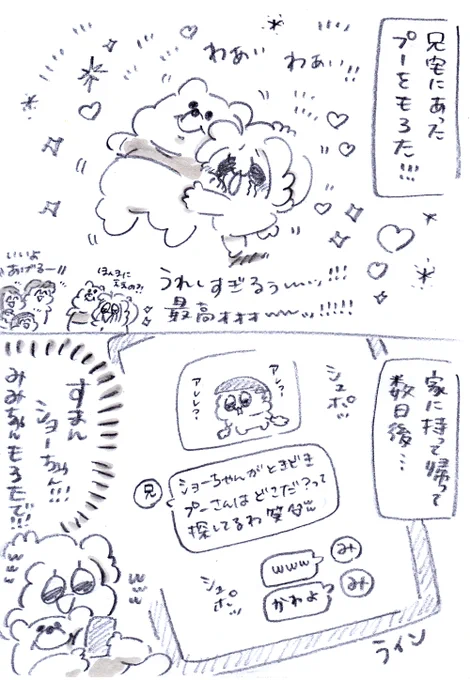 兄宅にあった
プーをもろた!!!
わあい
わあい!!
うれしすぎるぅ〜〜ッ!!!
最高オオオ〜〜ッ!!!!!
いいよ
あげるー!!
ほんまに
ええの?!
家に持って帰って
数日後…
シュポッ
アレ?
アレレ?
兄
ショーちゃんがときどき
プーさんはどこだ?って
探してるわ笑笑w
www
み
かわよ
み
シュポッ
ライン
すまん
ショーちゃん!!!
みみちゃんもろたで!!!
www